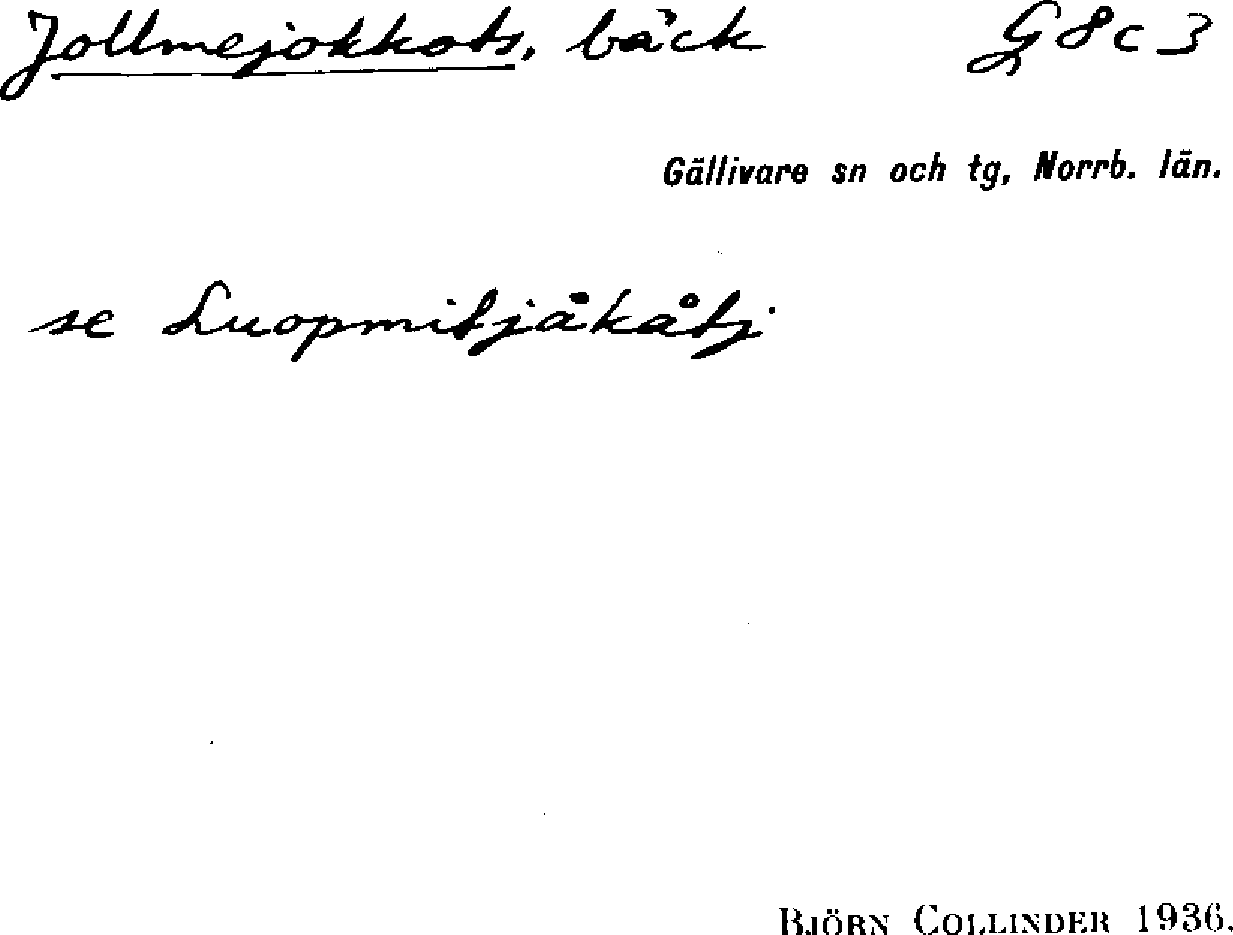 Jollmejokkots, bäck G8c3
Gällivare sn och tg, Norrb. län.
se Luopmitjåkåtj
BJÖRN COLLINDER 1936.